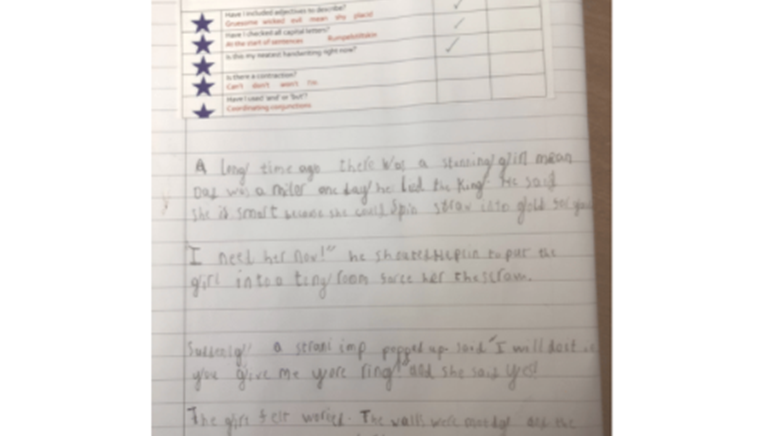 Have I included adjectives to describe?
Gruesome wicked evil mean shy placid
Have I checked all capital letters?
At the start of sentences Rumpelstiltskin
Is this my neatest handwriting right now?
Is there a contraction?
Can't don't won't I'm
Have I used 'and' or 'but'?
Coordinating conjunctions
A long time ago there was a girl mean
Dad was a miler one day he lied the King. He said
she is smart because she could Spin straw into gold for you
I need her now!" he shouted put the
girl into a tiny room the straw.
a imp popped up said "I will
you give me yore ring" and she said yes!
The girl felt woried. The walls were and the